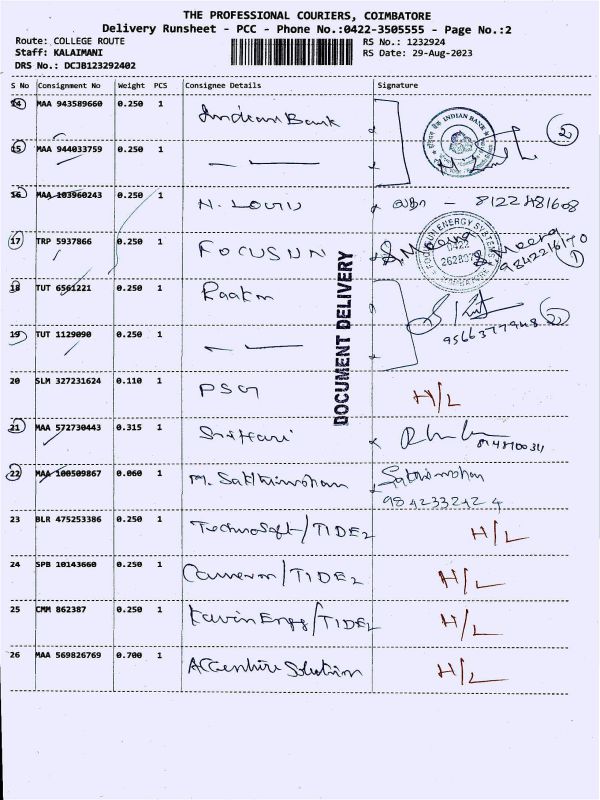 THE PROFESSIONAL COURIERS, COIMBATORE
Delivery Runsheet - PCC - Phone No.:0422-3505555 - Page No.:2
Route: COLLEGE ROUTE RS No.: 1232924
Staff: KALAIMANI RS Date: 29-Aug-2023
DRS No.: DCJB123292402
S No Consignment No Weight PCS Consignee Details Signature
14 MAA 943589660 0.250 1 Indian Bank
INDIAN BANK
2
15 MAA 944033759 0.250 1
16 MAA 103960243 0.250 1 N. LOUIS - 8122481608
17 TRP 5937866 0.250 1 FOCUS UN S. Meena S. Meena
FOCUS UN ENERGY SYSTEMS
0422
9842216170
1
18 TUT 6561221 0.250 1 Raakm
9566377948 2
19 TUT 1129090 0.250 1
DOCUMENT DELIVERY
20 SLM 327231624 0.110 1 PSG H/L
21 MAA 572730443 0.315 1 Srihari
22 MAA 100509867 0.060 1 M. Sakthimohan Sakthimohan
9842332424
23 BLR 475253386 0.250 1 Technosoft/TIDEL H/L
24 SPB 10143660 0.250 1 Cameron/TIDEL H/L
25 CMM 862387 0.250 1 Kavin Engg/TIDEL H/L
26 MAA 569826769 0.700 1 Accenture Solution H/L